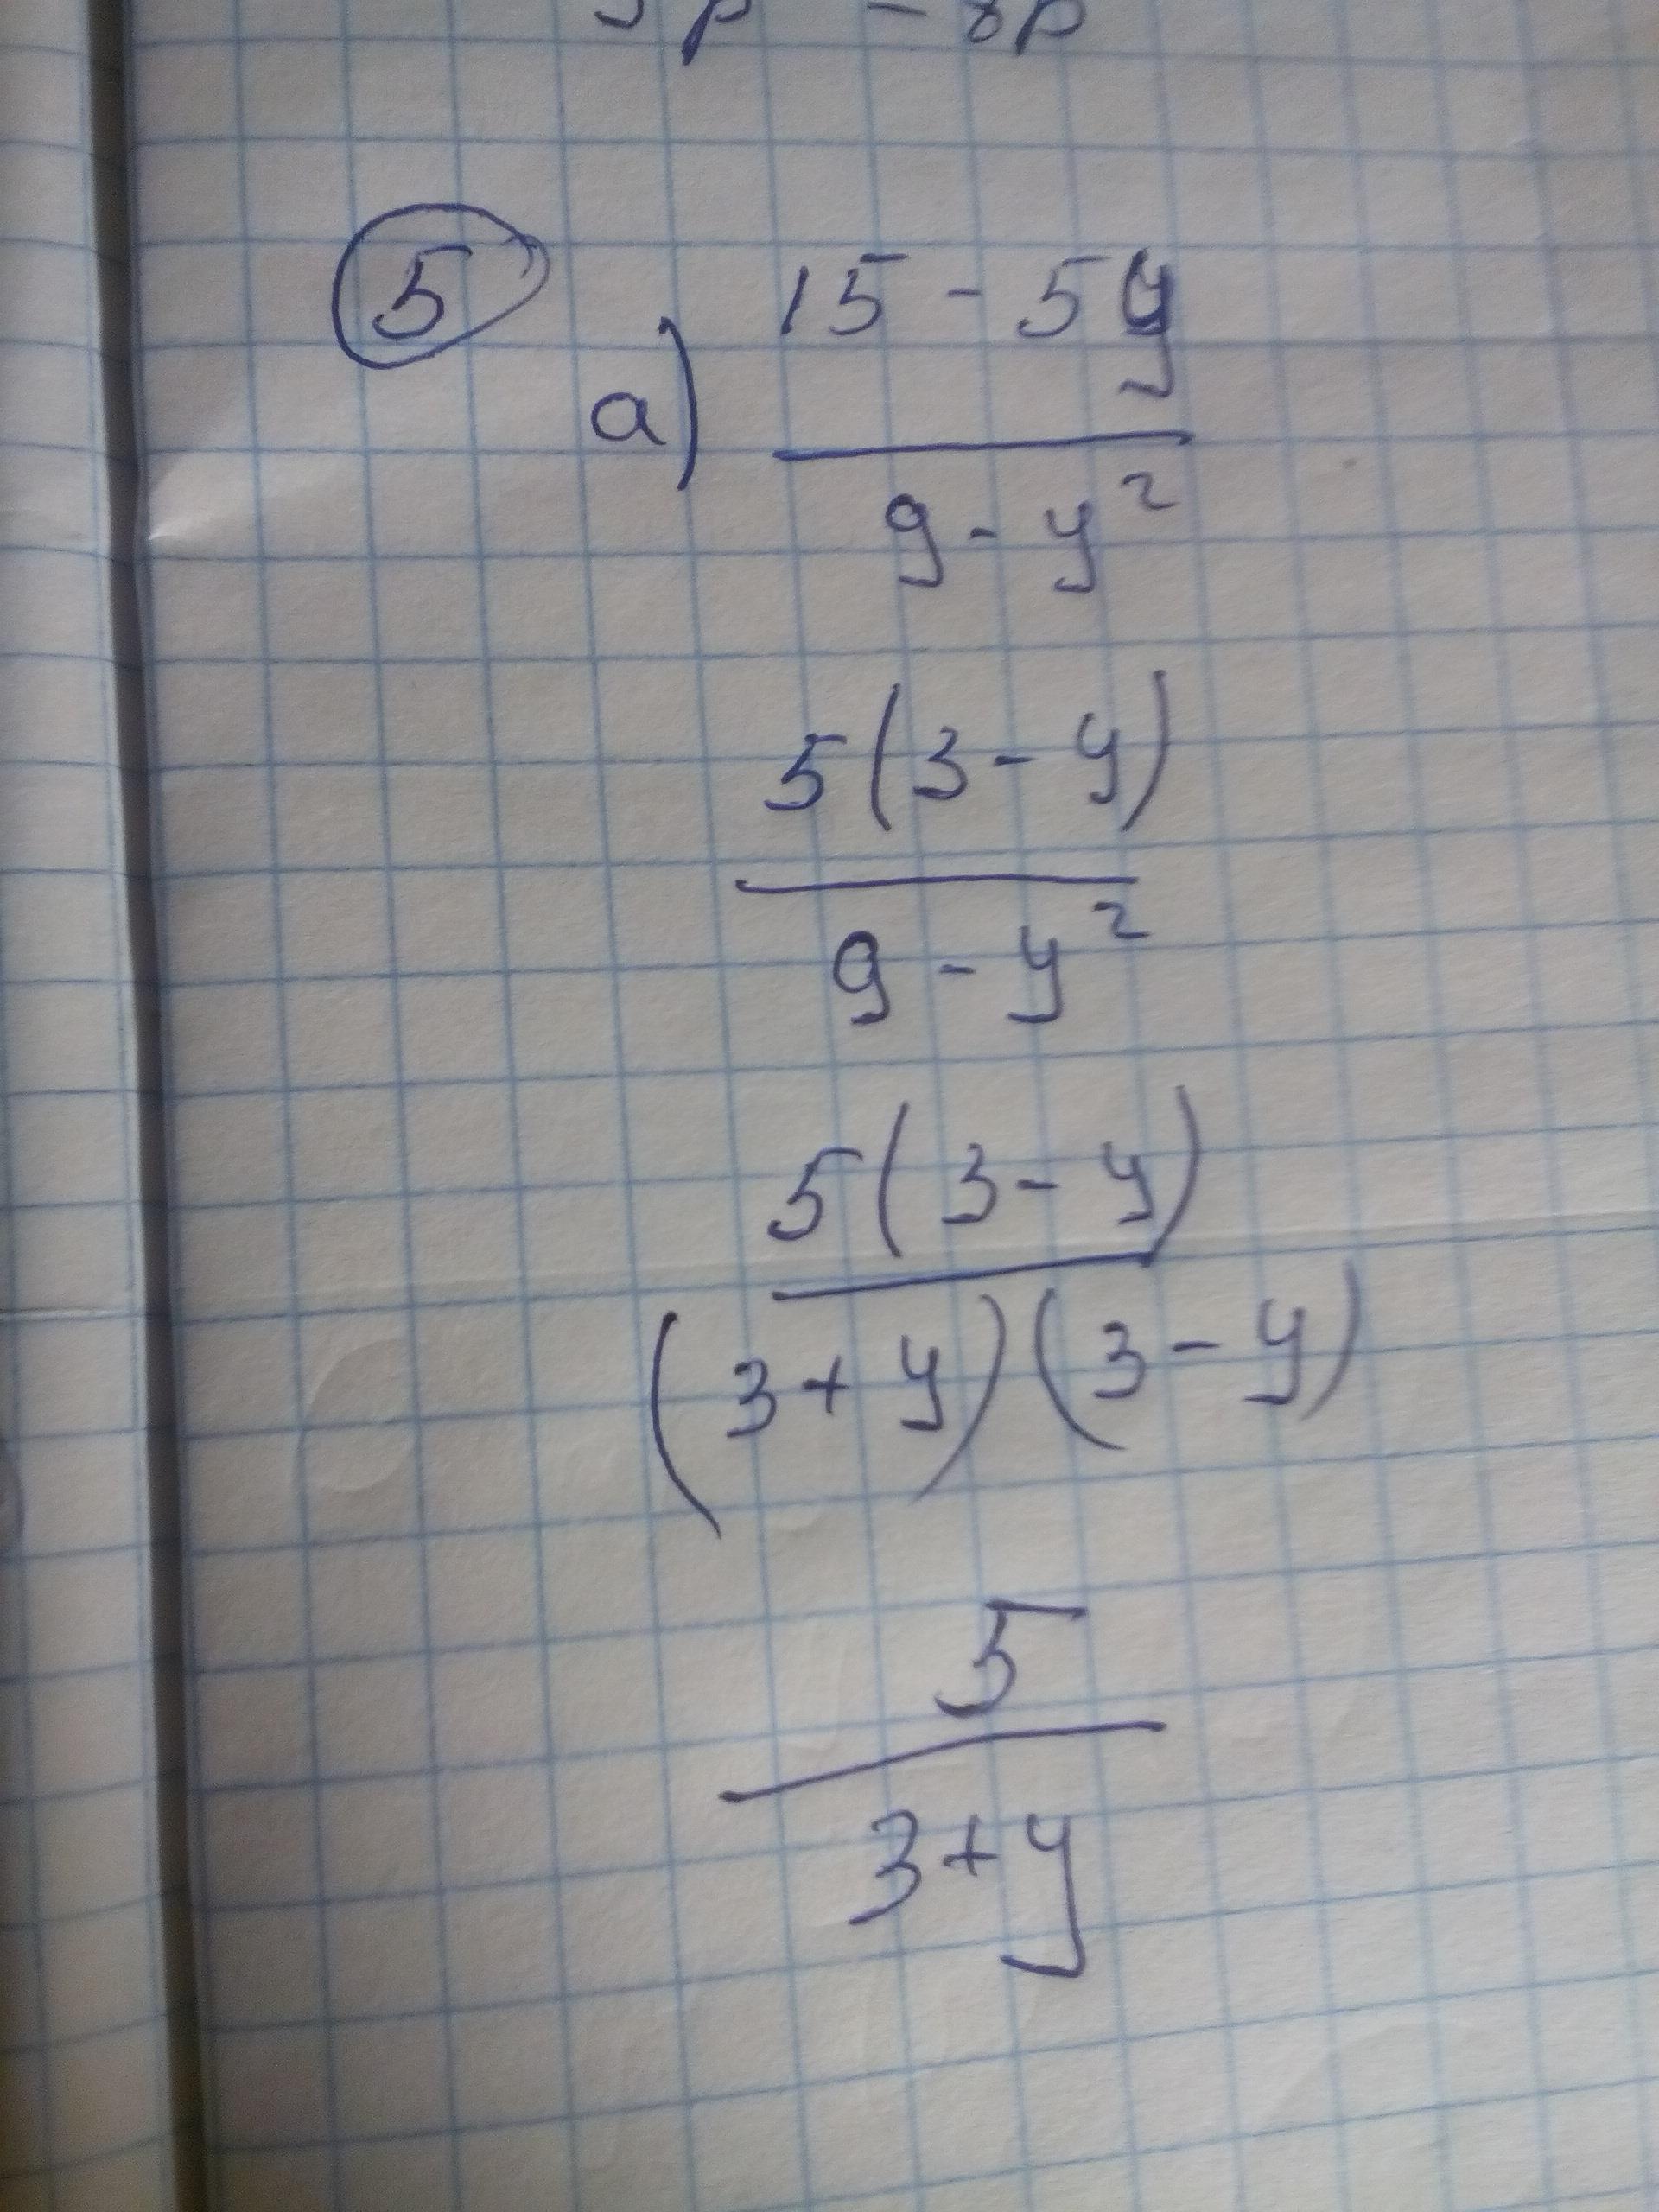 5
a) 15 - 5y
9 - y²
5(3 - y)
9 - y²
5(3 - y)
(3 + y)(3 - y)
5
3 + y